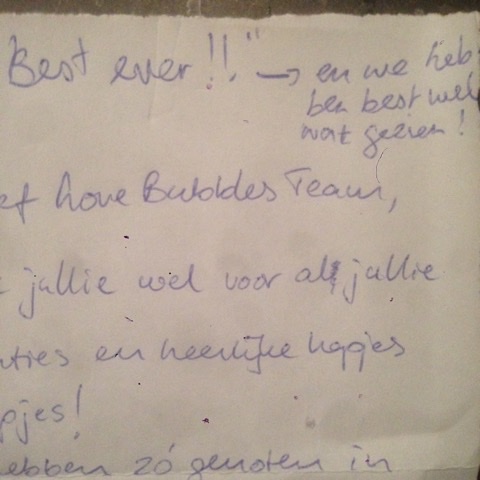 Best ever!!" → en we heb-
ben best wel
wat gezien!
ef Love Bubbles Team,
jullie wel voor al jullie
nties en heerlijke hapjes
pjes!
hebben zó genoten in